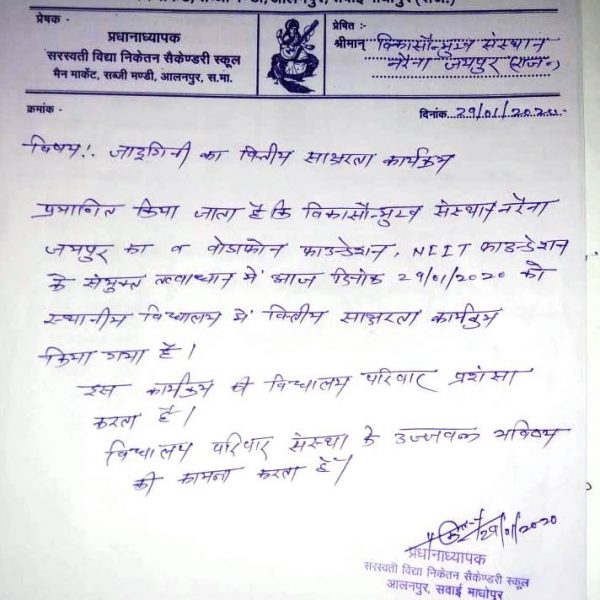 आलनपुर, सवाई माधोपुर (राज.)
प्रेषक -
प्रधानाध्यापक
सरस्वती विद्या निकेतन सैकेण्डरी स्कूल
मैन मार्केट, सब्जी मण्डी, आलनपुर, स.मा.
प्रेषित :-
श्रीमान् विकासौन्मुख संस्थान
नरैना जयपुर (राज.)
क्रमांक -
दिनांक 29/01/2020
विषय:- जादुगिनी का वित्तीय साक्षरता कार्यक्रम
प्रमाणित किया जाता है कि विकासौन्मुख संस्थान नरैना
जयपुर का व वोडाफोन फाउन्डेशन, NIIT फाउन्डेशन
के संयुक्त तत्वाधान में आज दिनांक 29/01/2020 को
स्थानीय विद्यालय में वित्तीय साक्षरता कार्यक्रम
किया गया है।
इस कार्यक्रम की विद्यालय परिवार प्रशंसा
करता है।
विद्यालय परिवार संस्था के उज्जवल भविष्य
की कामना करता है।
29/01/2020
प्रधानाध्यापक
सरस्वती विद्या निकेतन सैकेण्डरी स्कूल
आलनपुर, सवाई माधोपुर